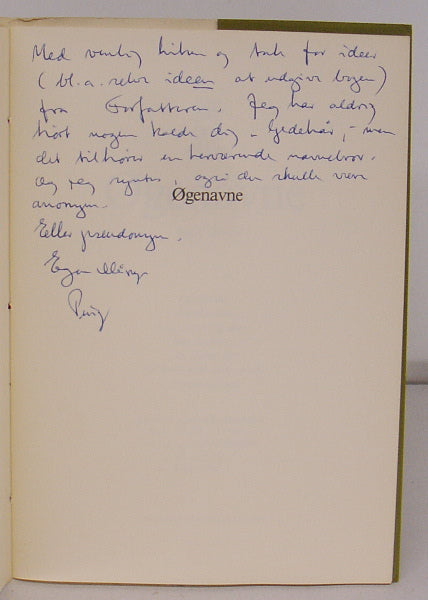 Med venlig hilsen og tak for ideer
(bl.a. selve ideen at udgive bogen)
fra Forfatteren. Jeg har aldrig
hört nogen kalde dig "Gedehår", men
det tilhører en herværende navnebror.
Og jeg syntes, også du skulle være
anonym.
Øgenavne
Eller pseudonym.